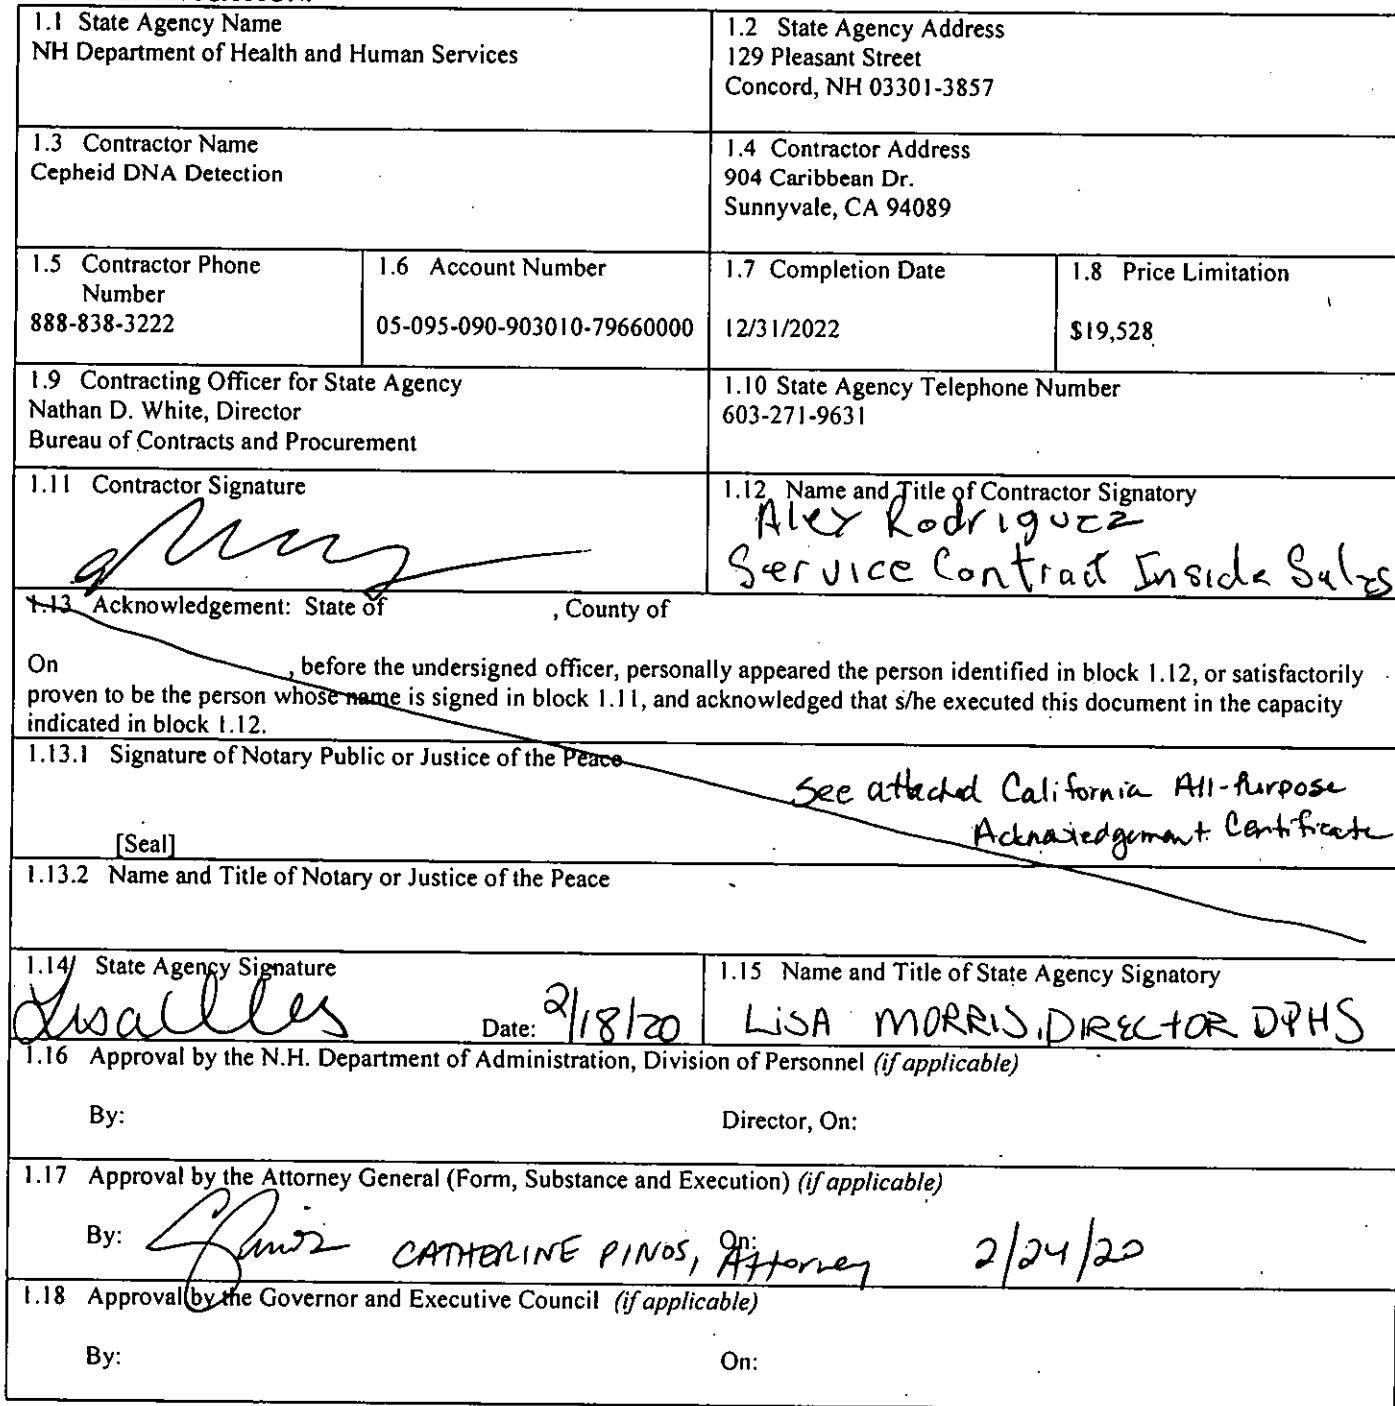 1.1 State Agency Name
NH Department of Health and Human Services
1.2 State Agency Address
129 Pleasant Street
Concord, NH 03301-3857
1.3 Contractor Name
Cepheid DNA Detection
1.4 Contractor Address
904 Caribbean Dr.
Sunnyvale, CA 94089
1.5 Contractor Phone
Number
888-838-3222
1.6 Account Number
05-095-090-903010-79660000
1.7 Completion Date
12/31/2022
1.8 Price Limitation
$19,528
1.9 Contracting Officer for State Agency
Nathan D. White, Director
Bureau of Contracts and Procurement
1.10 State Agency Telephone Number
603-271-9631
1.11 Contractor Signature
1.12 Name and Title of Contractor Signatory
Alex Rodriguez
Service Contract Inside Sales
1.13 Acknowledgement: State of , County of
On , before the undersigned officer, personally appeared the person identified in block 1.12, or satisfactorily
proven to be the person whose name is signed in block 1.11, and acknowledged that s/he executed this document in the capacity
indicated in block 1.12.
1.13.1 Signature of Notary Public or Justice of the Peace
See attached California All-Purpose
Acknowledgement Certificate
[Seal]
1.13.2 Name and Title of Notary or Justice of the Peace
1.14 State Agency Signature
Date: 2/18/20
1.15 Name and Title of State Agency Signatory
LISA MORRIS, DIRECTOR DPHS
1.16 Approval by the N.H. Department of Administration, Division of Personnel (if applicable)
By: Director, On:
1.17 Approval by the Attorney General (Form, Substance and Execution) (if applicable)
By: CATHERINE PINOS, Attorney On: 2/24/20
1.18 Approval by the Governor and Executive Council (if applicable)
By: On: